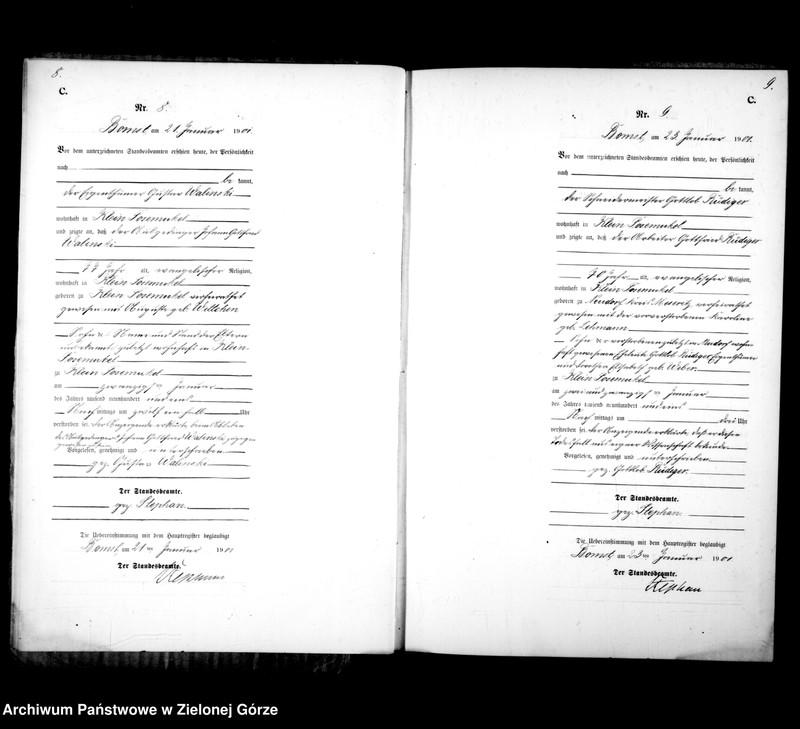 8.
C.
Nr. 8.
Bomst am 21. Januar 1901.
Vor dem unterzeichneten Standesbeamten erschien heute, der Persönlichkeit
nach
be kannt,
der Eigenthümer Gustav Walinski
wohnhaft in Klein Posemukel
und zeigte an, daß der Ausgedinger Johann Gottfried
Walinski
77 Jahr alt, evangelischer Religion,
wohnhaft in Klein Posemukel
geboren zu Klein Posemukel verheirathet
gewesen mit Auguste geb.
Sohn de Namen und Stand der Eltern
unbekannt, zuletzt wohnhaft in Klein
Posemukel
zu Klein Posemukel
am zwanzigsten Januar
des Jahres tausend neunhundert und eins
Nachmittags um zwölf ein halb Uhr
verstorben sei. Der Anzeigende erklärte beim Ableben
des Ausgedingers Johann Gottfried Walinski zugegen
gewesen
Vorgelesen, genehmigt und unterschrieben
gez. Gustav Walinski
Der Standesbeamte.
gez. Stephan.
Die Uebereinstimmung mit dem Hauptregister beglaubigt
Bomst, am 21ten Januar 1901
Der Standesbeamte.
Stephan
9.
C.
Nr. 9.
Bomst, am 23. Januar 1901.
Vor dem unterzeichneten Standesbeamten erschien heute, der Persönlichkeit
nach
be kannt,
der Schneidermeister Gottlob Rüdiger
wohnhaft in Klein Posemukel
und zeigte an, daß der Arbeiter Gottfried Rüdiger
70 Jahr alt, evangelischer Religion,
wohnhaft in Klein Posemukel
geboren zu Neudorf Kreis Meseritz, verheirathet
gewesen mit der vorverstorbenen Karoline
geb. Lehmann
Sohn de verstorbenen zuletzt in Neudorf wohn
haft gewesenen Eheleute Gottlob Rüdiger Eigenthümer
und Elisabeth geb. Weber.
zu Klein Posemukel
am zwei und zwanzigsten Januar
des Jahres tausend neunhundert und eins
Nachmittags um drei Uhr
verstorben sei. Der Anzeigende erklärte, daß er diesen
Todesfall aus eigener Wissenschaft bekunde.
Vorgelesen, genehmigt und unterschrieben
gez. Gottlob Rüdiger.
Der Standesbeamte.
gez. Stephan.
Die Uebereinstimmung mit dem Hauptregister beglaubigt
Bomst, am 23ten Januar 1901.
Der Standesbeamte.
Stephan
Archiwum Państwowe w Zielonej Górze